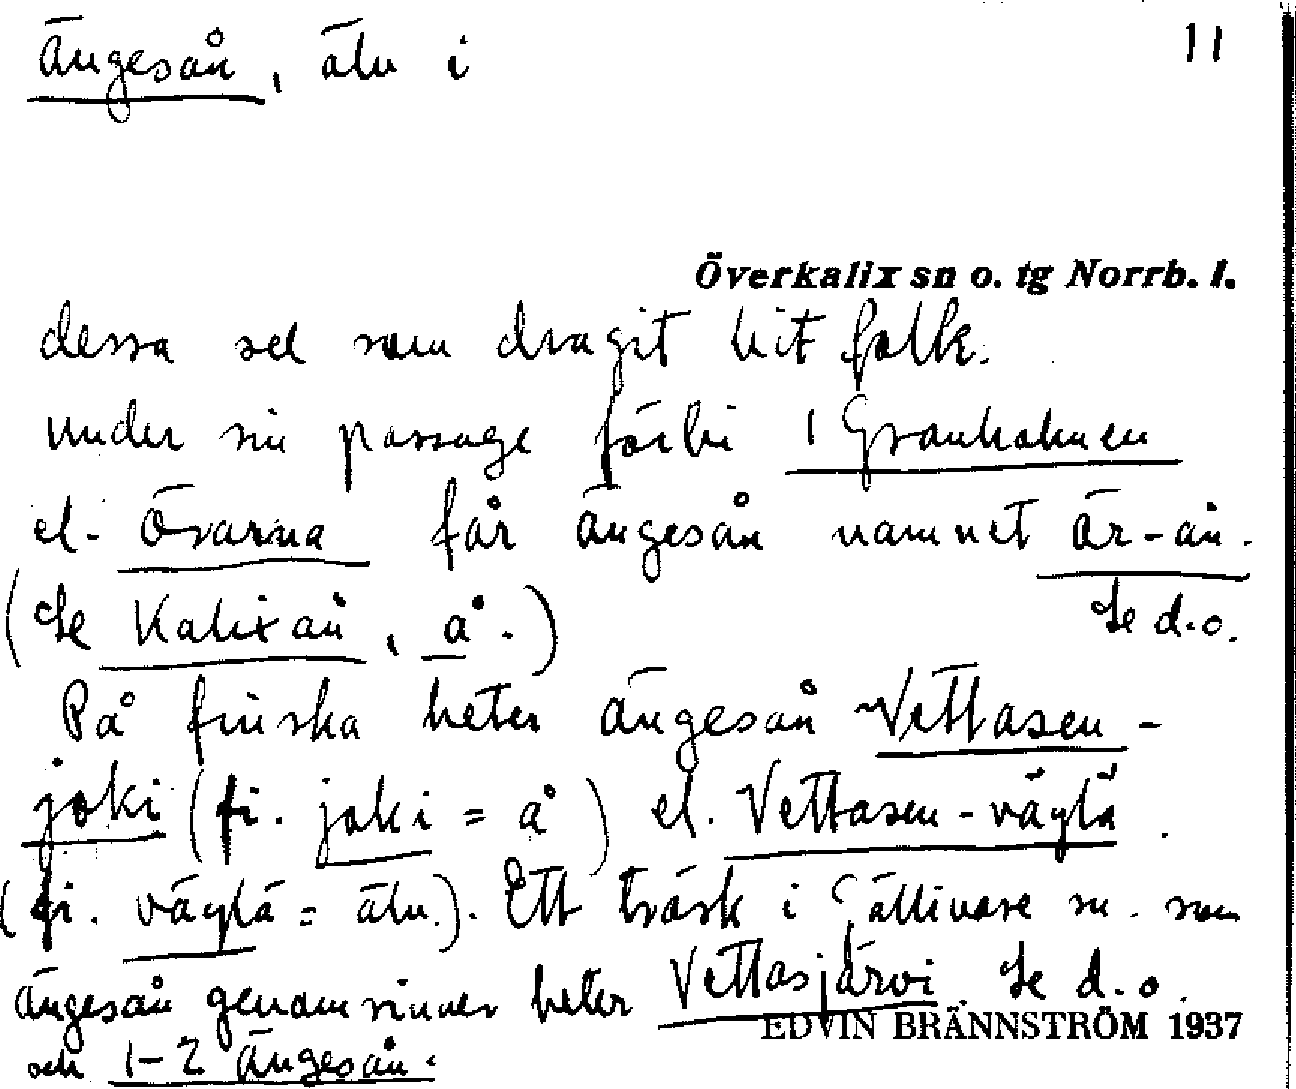 Ängesån, älv i
11
Överkalix sn o. tg Norrb. l.
dessa sel som dragit hit folk.
Under sin passage förbi 1 Granholmen
el. Övarna får Ängesån namnet Är-ån.
(Se Kalixån, å.) Se d.o.
På finska heter Ängesån Vettasen-
joki (fi. joki = å) el. Vettasen-väylä.
(fi. väylä = älv.). Ett träsk i Gällivare sn. som
Ängesån genomrinner heter Vettasjärvi. Se d.o.
EDVIN BRÄNNSTRÖM 1937
och 1-2 Ängesån.